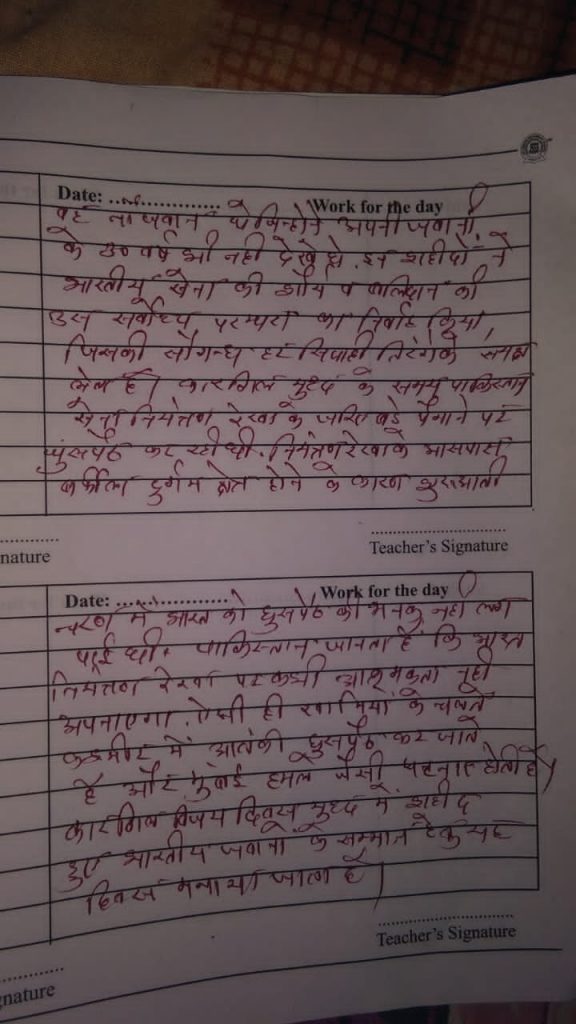 Date: .................... Work for the day
वह नौजवान थे जिन्होंने अपनी जवानी
के 30 वर्ष भी नही देखे हो. इन शहीदों ने
भारतीय सेना की शौर्य व बलिदान की
उस सर्वोच्च परम्परा का निर्वाह किया,
जिसकी सौगन्ध हर सिपाही तिरंगे के समक्ष
लेता है। कारगिल युध्द के समय पाकिस्तान
सेना नियंत्रण रेखा के जरिए बडे पैमाने पर
घुंसपैठ कर रही थी. नियंत्रण रेखा के आसपास
बर्फीला दुर्गम क्षेत्र होने के कारण शुरुआती
nature
Teacher's Signature
Date: .................... Work for the day
चरण में भारत को घुसपैठ की भनक नही लग
पाई थी. पाकिस्तान जानता है कि भारत
नियंत्रण रेखा पर कभी आक्रमकता नही
अपनाएगा. ऐसी ही खामियों के चलते
कश्मीर में आतंकी घुसपैठ कर जाते
है और मुंबई हमले जैसी घटनाए होती है।
कारगिल विजय दिवस युध्द में शहीद
हुए भारतीय जवानो के सम्मान हेतु यह
दिवस मनाया जाता है।
Teacher's Signature
gnature